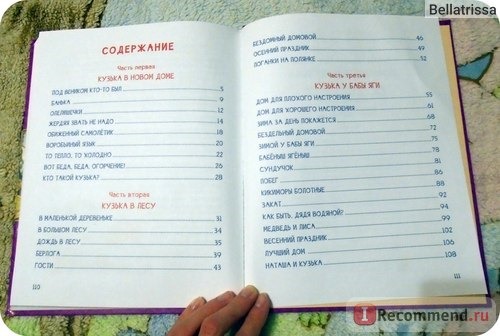 Bellatrissa
СОДЕРЖАНИЕ
Часть первая
КУЗЬКА В НОВОМ ДОМЕ
ПОД ВЕНИКОМ КТО-ТО БЫЛ 5
БАНЬКА 9
ОЛЕЛЮЕЧКИ 12
ЖЕРДЯЯ ЗВАТЬ НЕ НАДО 14
ОБИЖЕННЫЙ САМОЛЁТИК 18
ВОРОБЬИНЫЙ ЯЗЫК 20
ТО ТЕПЛО, ТО ХОЛОДНО 22
ВОТ БЕДА, БЕДА, ОГОРЧЕНИЕ! 26
КТО ТАКОЙ КУЗЬКА? 28
Часть вторая
КУЗЬКА В ЛЕСУ
В МАЛЕНЬКОЙ ДЕРЕВЕНЬКЕ 31
В БОЛЬШОМ ЛЕСУ 34
ДОЖДЬ В ЛЕСУ 35
БЕРЛОГА 39
ГОСТИ 43
110
БЕЗДОМНЫЙ ДОМОВОЙ 46
ОСЕННИЙ ПРАЗДНИК 49
ПОГАНКИ НА ПОЛЯНКЕ 52
Часть третья
КУЗЬКА У БАБЫ ЯГИ
ДОМ ДЛЯ ПЛОХОГО НАСТРОЕНИЯ 55
ДОМ ДЛЯ ХОРОШЕГО НАСТРОЕНИЯ 61
ЗИМА ЗА ДЕНЬ ПОКАЖЕТСЯ 68
БЕЗДЕЛЬНЫЙ ДОМОВОЙ 72
ЗИМОЙ У БАБЫ ЯГИ 75
БАБЕНЫШ ЯГЕНЫШ 81
СУНДУЧОК 86
ПОБЕГ 88
КИКИМОРЫ БОЛОТНЫЕ 92
ЗАКАТ 94
КАК БЫТЬ, ДЯДЯ ВОДЯНОЙ? 99
МЕДВЕДЬ И ЛИСА 102
ВЕСЕННИЙ ПРАЗДНИК 106
ЛУЧШИЙ ДОМ 108
НАТАША И КУЗЬКА
111
IRecommend.ru